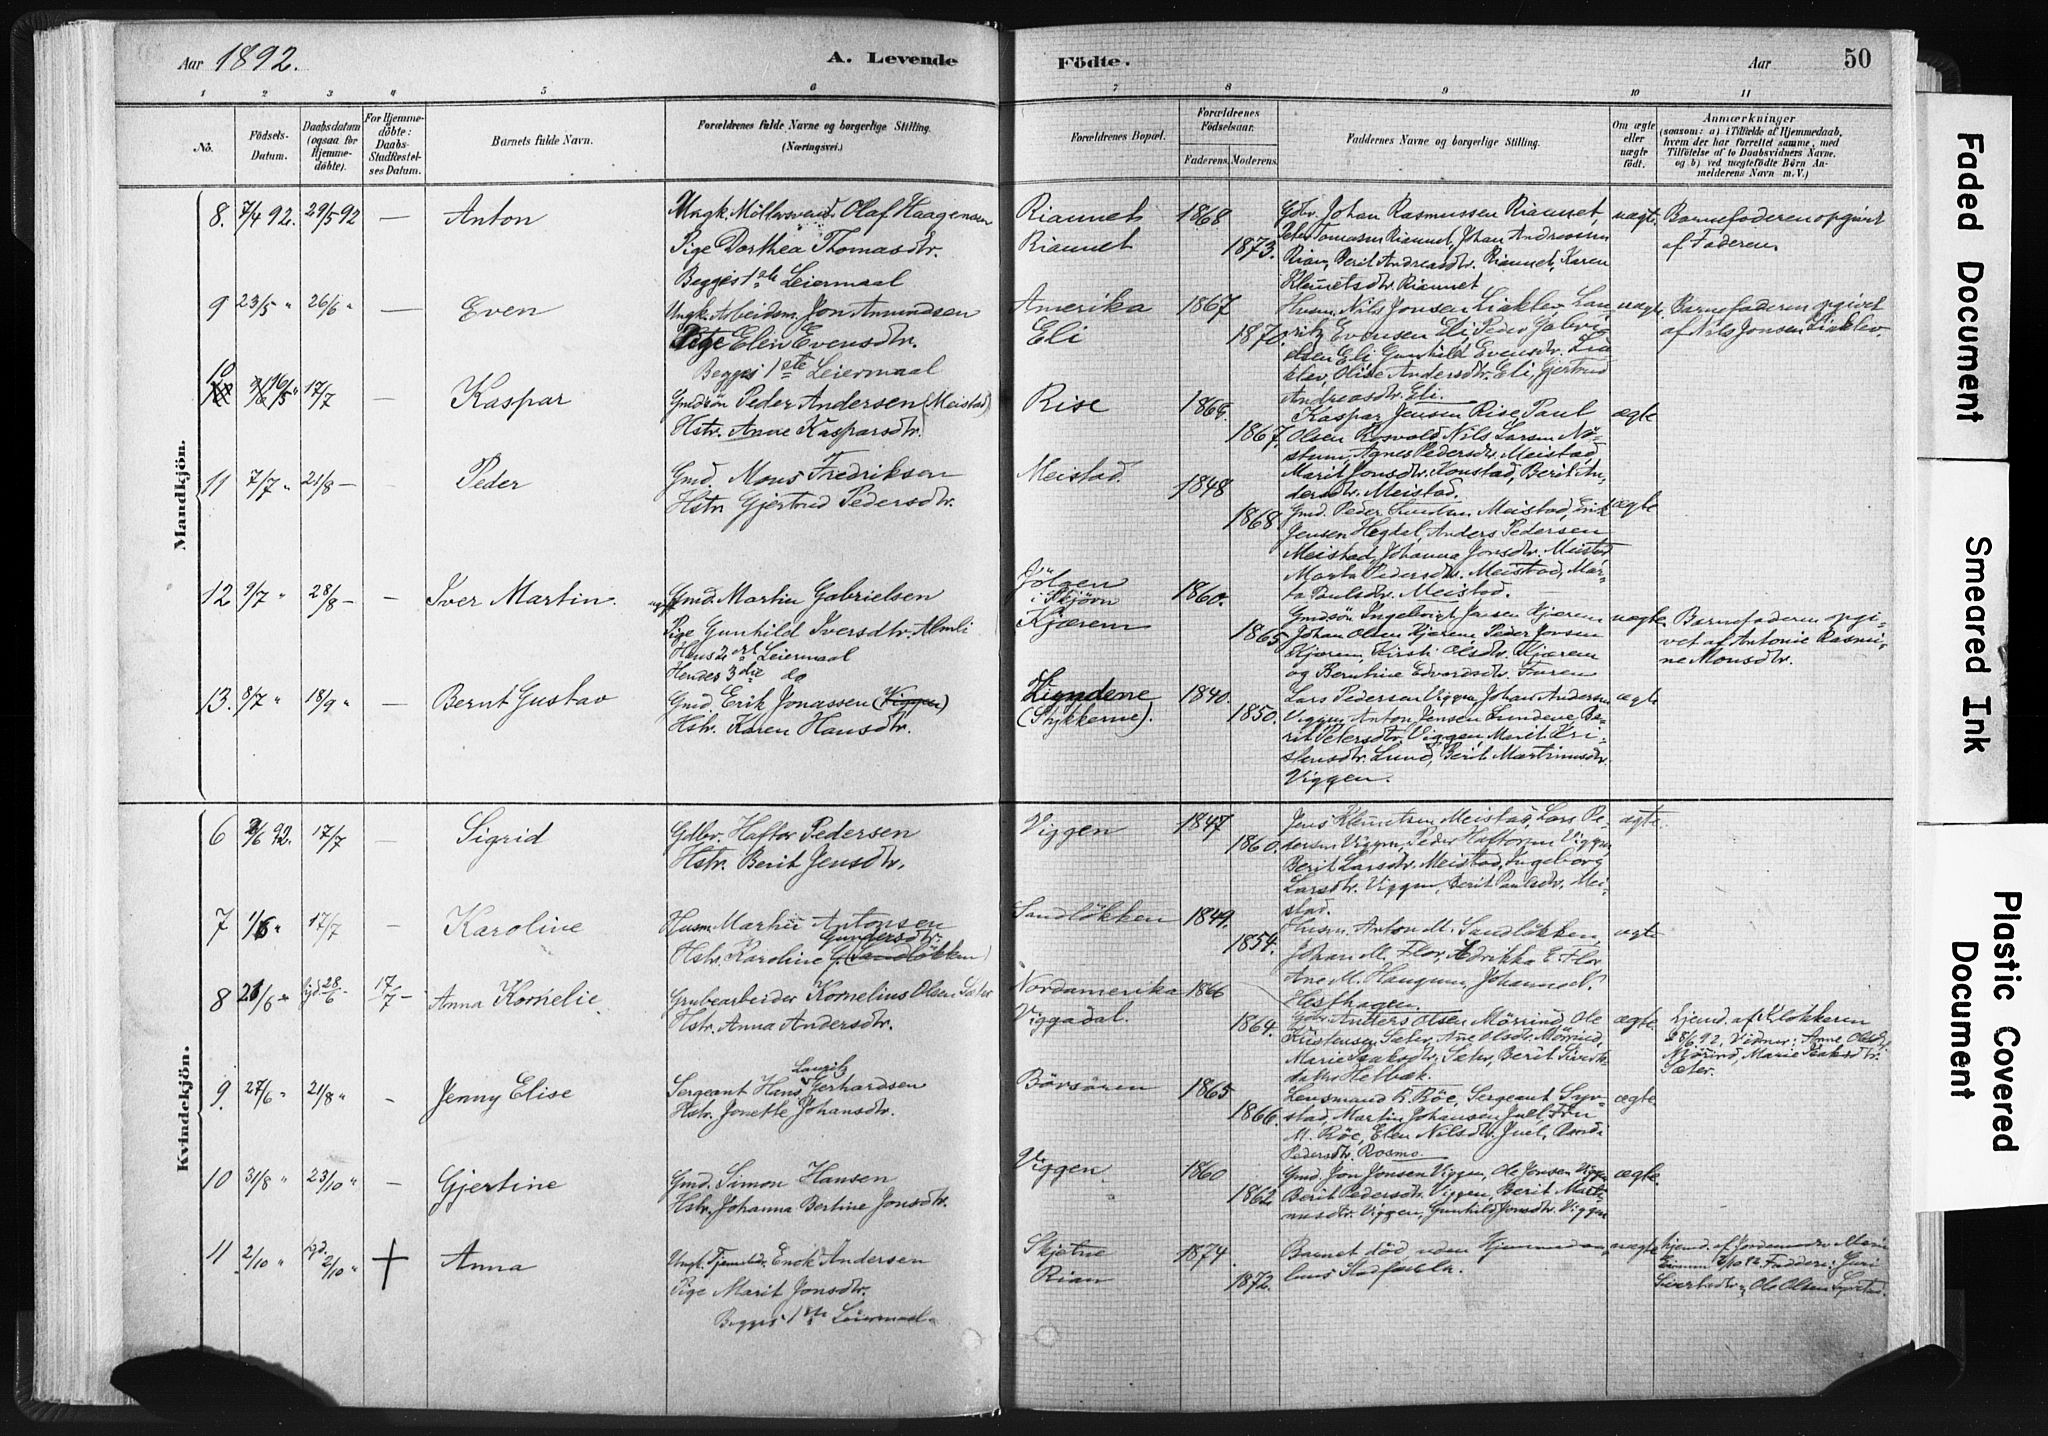 Aar 1892.
A. Levende Födte.
Aar
50
1 2 3 4 5 6 7 8 9 10 11
No.
Födsels-Datum.
Daabsdatum (ogsaa for Hjemme-döbte).
For Hjemme-döbte: Daabs-Stadfæstel-ses Datum.
Barnets fulde Navn.
Forældrenes fulde Navne og borgerlige Stilling. (Næringsvei.)
Forældrenes Bopæl.
Forældrenes Födselsaar.
Faderens. Moderens.
Faddernes Navne og borgerlige Stilling.
Om ægte eller uægte födt.
Anmærkninger
(saasom: a) i Tilfælde af Hjemmedaab, hvem der har forrettet samme, med Tilföielse af to Daabsvidners Navne, og b) ved uægtefödte Börn An-melderens Navn m. V.)
Mandkjön.
8. 7/4 92. 29/5 92 — Anton
Ungk. Möllersvend Olaf Haagensen
Pige Dorthea Thomasdtr.
Begges 1ste Leiermaal
Riannet
Riannet
1868
1873.
Gdbr. Johan Rasmussen Riannet,
Peter Tomasen Riannet, Johan Andreassen
Rian, Berit Andreasdtr. Riannet, Karen
Klemetsdtr. Riannet
uægte.
Barnefaderen opgivet
af Faderen
9 23/5 " 26/6 " — Even
Ungk. Arbeidsm. Jon Amundsen
Pige Elen Evensdtr.
Begges 1ste Leiermaal
Amerika
Eli
1867
1870.
Husm. Nils Jonsen Liaklev, Lau-
ritz Evensen Eli, Peder Gabri-
elsen Eli, Gunhild Evensdtr. Lia
klev, Olise Andersdtr. Eli, Gjertrud
Andreasdtr. Eli.
uægte
Barnefaderen opgivet
af Nils Jonsen Liaklev.
10 16/5 " 17/7 — Kaspar
Gmdsön Peder Andersen (Meistad)
Hstr. Anne Kaspersdtr.
Rise
1865.
1867.
Kaspar Jensen Rise, Paul
Olsen Rosvold, Nils Larsen Nö-
stum, Agnes Pedersdtr. Meistad,
Marit Jonsdtr. Konstad, Berit An-
dersdtr. Meistad.
ægte
11 7/7 " 21/8 — Peder
Gmd. Mons Fredriksen
Hstr. Gjertrud Pedersdtr.
Meistad.
1848
1868.
Gmd. Peder Meistad, Erik
Jensen Hegdal, Anders Pedersen
Meistad, Johanna Jonsdtr. Meistad,
Marta Pedersdtr. Meistad, Mar-
ta Paulsdtr. Meistad.
ægte
12 9/7 " 28/8 — — Iver Martin.
Gmd. Martin Gabrielsen
Pige Gunhild Iversdtr. Almli
Hans 2det Leiermaal
Hendes 3die do
Jölgen
i Skjörn
Kjærem
1860.
1865
Gmdsön Ingebrigt Jensen Kjærem
Johan Olsen Kjærem, Peder Jonsen
Kjærem, Kirsti Olsdtr. Kjærem
og Berntine Edvardsdtr. Furen
uægte
Barnefaderen opgi-
vet af Antonie Rasmi-
ne Monsdtr.
13. 8/7 " 18/9 " — Bernt Gustav
Gmd. Erik Jonassen (Viggen)
Hstr. Karen Hansdtr.
(Stykkerne).
1840.
1850.
Lars Pedersen Viggen, Johan Andersen
Viggen, Anton Jensen Lundene, Be-
rit Petersdtr. Viggen, Marit Kri-
stensdtr. Lund, Berit Martinusdtr.
Viggen.
ægte
Kvindekjön.
6 2/6 92. 17/7 — Sigrid
Gdbr. Haftor Pedersen
Hstr. Berit Jensdtr.
Viggen
1847
1860.
Jens Klemetsen Meistad, Lars Pe-
dersen Viggen, Peder Haftorsen Viggen
Berit Larsdtr. Meistad, Ingeborg
Larsdtr. Viggen, Berit Paulsdtr. Mei-
stad.
ægte
7 1/6 " 17/7 — Karoline
Husm. Martin Antonsen
Gundersdtr.
Hstr. Karoline G. (Sandlökken)
Sandlökken
1849.
1854.
Husm. Anton M. Sandlökken,
Johan M. Flor, Adrikka E. Flor
Ane M. Haugum, Johannes N.
Hesthagen.
ægte
8 21/6 " hjd. 28/6 - 17/7 — Anna Kornelie
Grubearbeider Kornelius Olsen Sæter
Hstr. Anna Andersdtr.
Nordamerika
Viggadal.
1866
1864.
Gdbr. Anders Olsen Mörrind, Ole
Kristensen Sæter, Ane Olsdtr. Mörrind,
Marie Isaksdtr. Sæter, Berit Siverts-
datter Helbæk.
ægte
Hjemd. af Klokkeren
28/6 92. Vidner: Anne Olsdtr.
Mörrind, Marie Isaksdtr.
Sæter.
9. 27/6 " 21/8 " - Jenny Elise
Lauritz
Sergeant Hans Gerhardsen
Hstr. Jonette Johansdtr.
Börsören
1865
1866.
Lensmand R. Röe, Sergeant Syr-
stad, Martin Johansen Juel, Fru
M. Röe, Elen Nilsdtr. Juel, Randi
Pedersdtr. Rosmo
ægte
10 31/8 " 23/10 " - Gjertine
Gmd. Simon Hansen
Hstr. Johanna Bertine Jonsdtr.
Viggen
1860
1862
Gmd. Jon Jonsen Viggen, Ole Jensen Viggen
Berit Pedersdtr. Viggen, Berit Marti-
nusdtr. Viggen, Gunhild Jonsdtr. Viggen
ægte.
11 2/10 " hjd. 2/10 " + Anna
Ungk. Tjenestedr. Enok Andersen
Pige Marit Jonsdtr.
Begges 1ste Leiermaal
Skjetne
Rian
1874.
1872.
Barnet död uden Hjemmedaa-
bens Stadfæstelse.
uægte
Hjemd. af Jordemoder
2/10 92. Faddere: Guri
Sivertsdtr., Ole Olsen
Faded Document
Smeared Ink
Plastic Covered Document